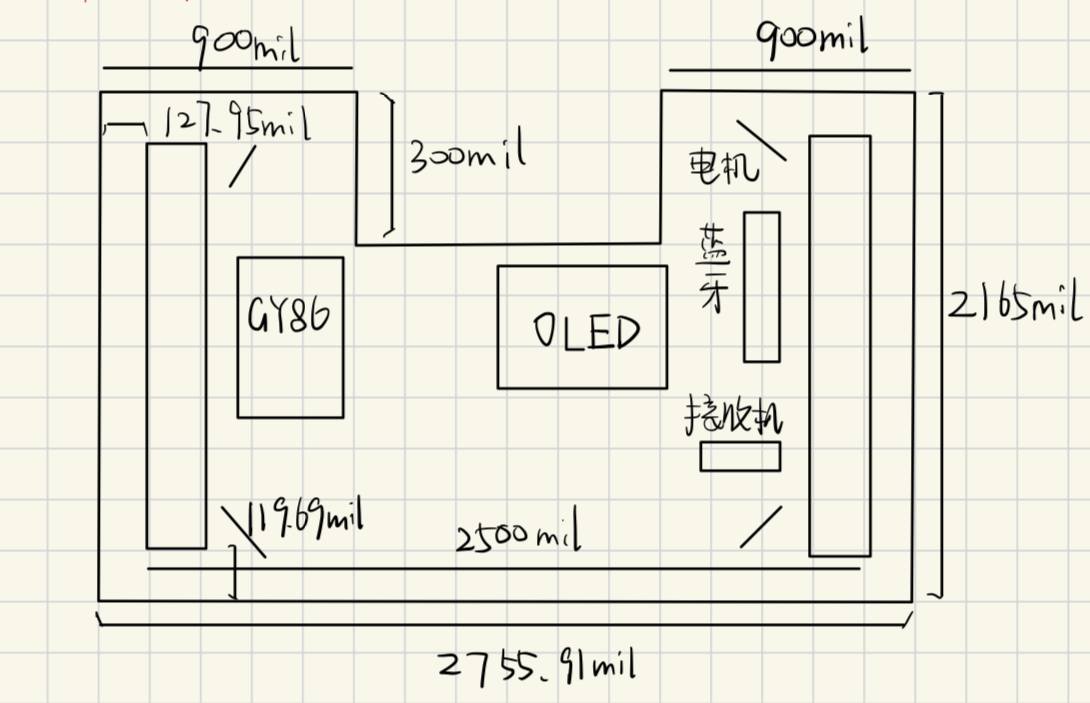 900mil
900mil
127.95mil
300mil
电机
蓝牙
GY86
OLED
2165mil
接收机
119.69mil
2500mil
2755.91mil